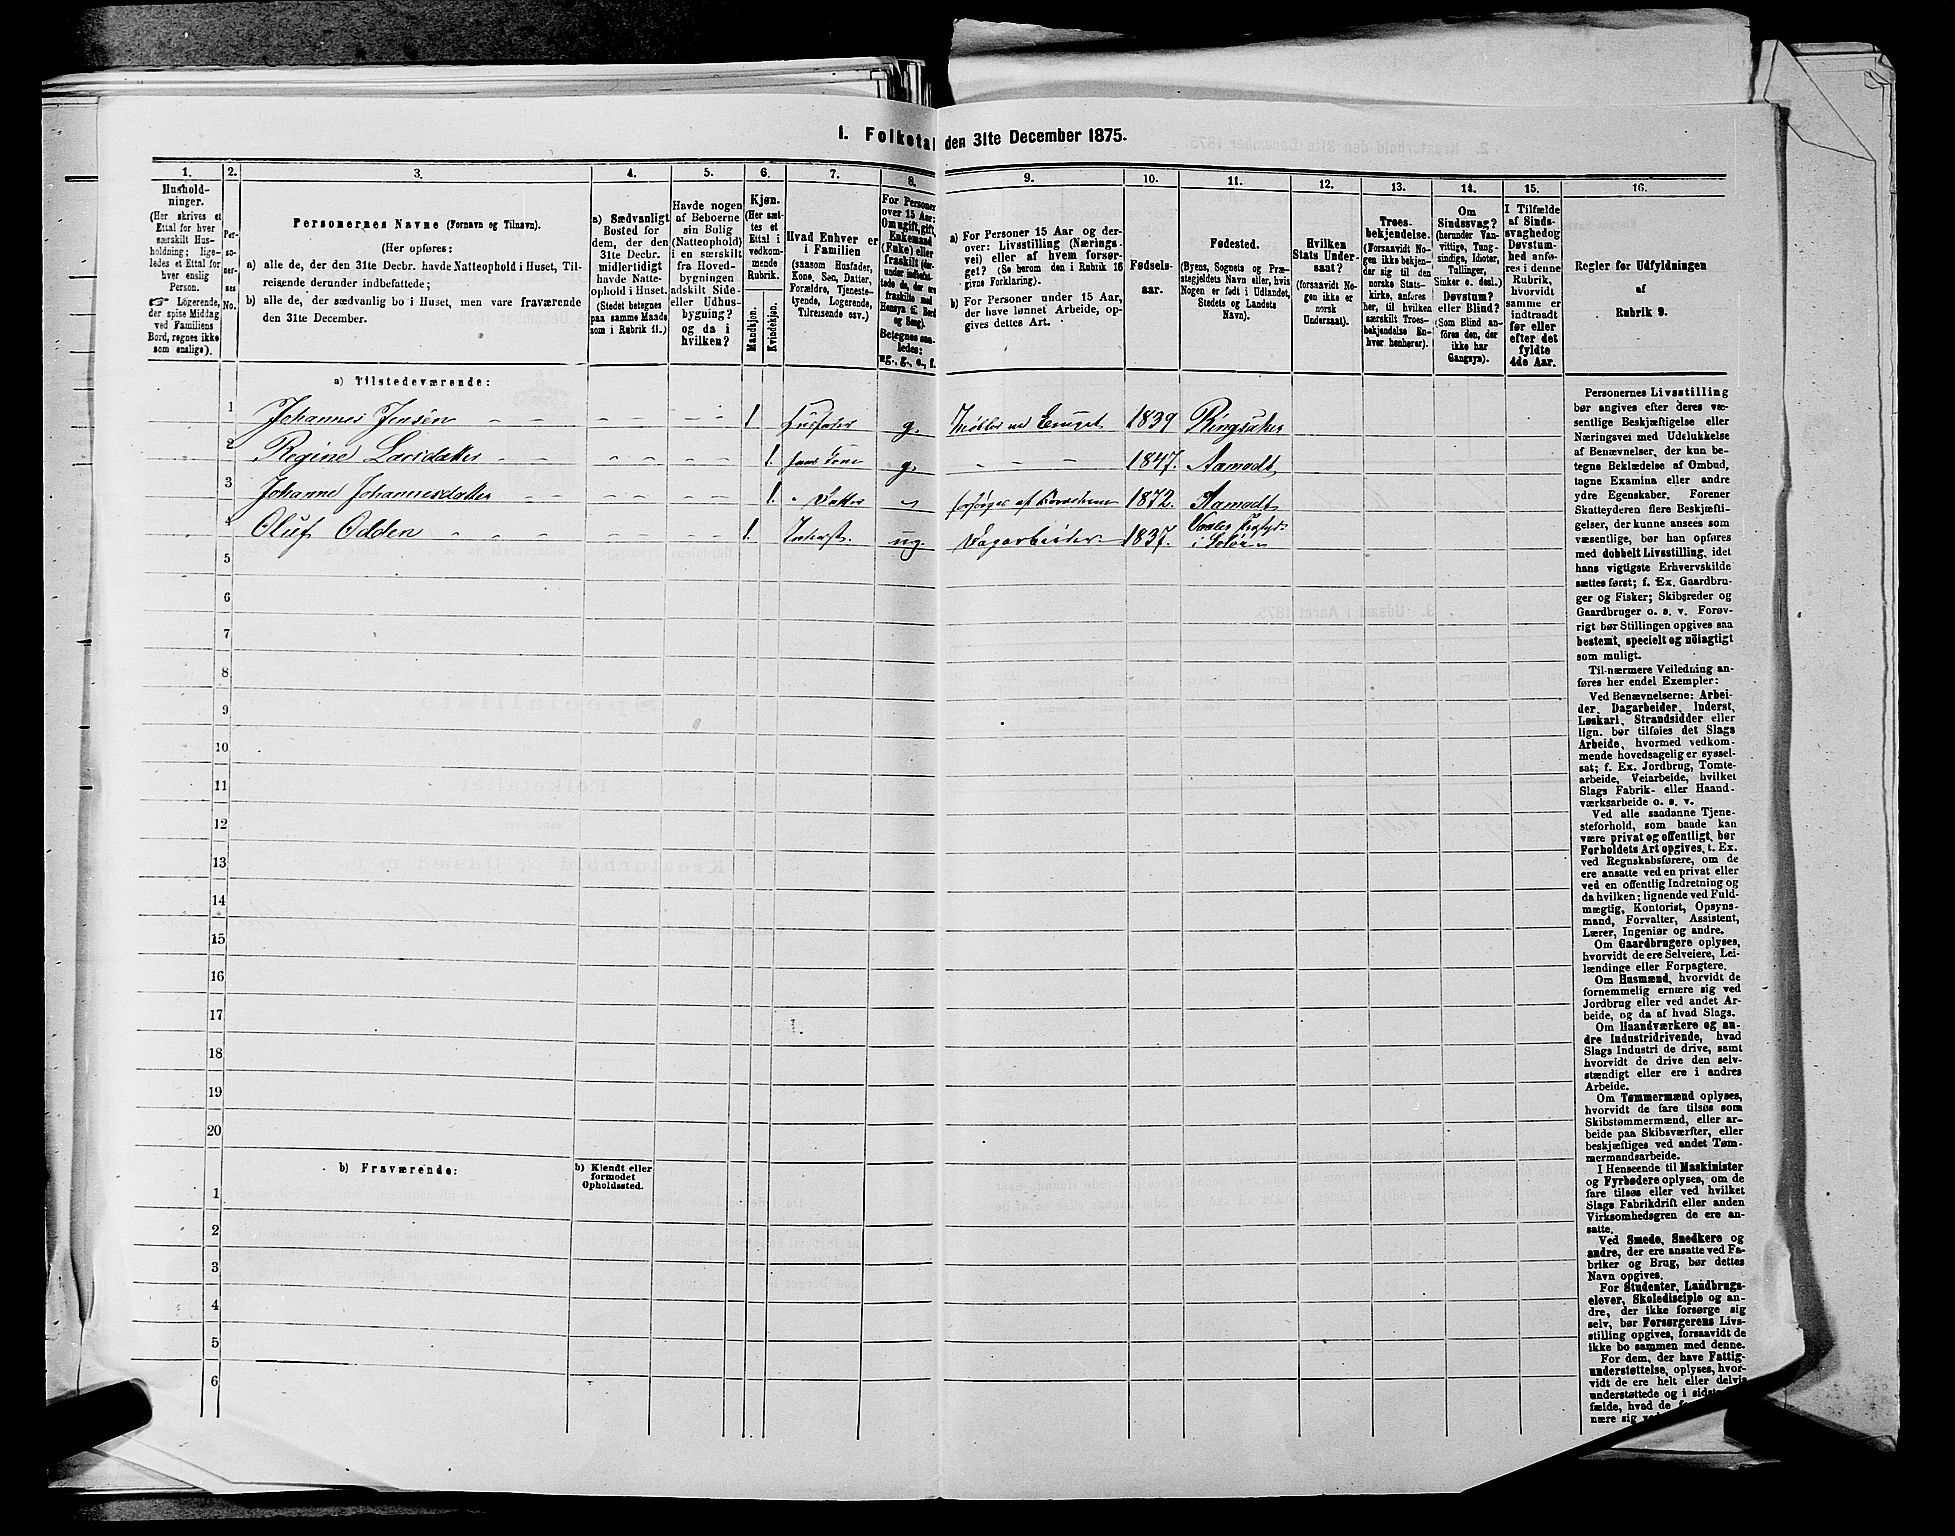 1. Folketal den 31te December 1875.
1. 2. 3. 4. 5. 6. 7. 8. 9. 10. 11. 12. 13. 14. 15. 16.
Hushold-
ninger.
(Her skrives et
Ettal for hver
særskilt Hus-
holdning; lige-
ledes et Ettal for
hver enslig
Person.
☞ Logerende,
der spise Middag
ved Familiens
Bord, regnes ikke
som enslige).
Per-
so-
ner-
nes
No.
Personernes Navne (Fornavn og Tilnavn).
(Her opføres:
a) alle de, der den 31te Decbr. havde Natteophold i Huset, Til-
reisende derunder indbefattede;
b) alle de, der sædvanlig bo i Huset, men vare fraværende
den 31te December.
a) Sædvanligt
Bosted for
dem, der den
31te Decbr.
midlertidigt
havde Natte-
ophold i Huset.
(Stedet betegnes
paa samme Maade
som i Rubrik 11.)
Havde nogen
af Beboerne
sin Bolig
(Natteophold)
i en særskilt
fra Hoved-
bygningen
adskilt Side-
eller Udhus-
bygning?
og da i
hvilken?
Kjøn.
(Her sæt-
tes et
Ettal i
vedkom-
mende
Rubrik.
Mandkjøn.
Kvindekjøn.
Hvad Enhver er
i Familien
(saasom Husfader,
Kone, Søn, Datter,
Forældre, Tjeneste-
tyende, Logerende,
Tilreisende osv.)
For Personer
over 15 Aar:
Om ugift, gift,
Enkemand
(Enke) eller
fraskilt (der-
under indbefat-
tede de, der ere
fraskilte med
Hensyn til Bord
og Seng).
Betegnes saa-
ledes:
ug., g., e., f.
a) For Personer 15 Aar og der-
over: Livsstilling (Nærings-
vei) eller af hvem forsør-
get? (Se herom den i Rubrik 16
givne Forklaring).
b) For Personer under 15 Aar,
der have lønnet Arbeide, op-
gives dettes Art.
Fødsels-
aar.
Fødested.
(Byens, Sognets og Præ-
stegjeldets Navn eller, hvis
Nogen er født i Udlandet,
Stedets og Landets
Navn).
Hvilken
Stats Under-
saat?
(forsaavidt No-
gen ikke er
norsk
Undersaat).
Troes-
bekjendelse.
(Forsaavidt No-
gen ikke bekjen-
der sig til den
norske Stats-
kirke, anføres
her, til hvilken
særskilt Troes-
bekjendelse En-
hver henhører).
Om
Sindssvag?
(herunder Van-
vittige, Tung-
sindige, Idioter,
Tullinger,
Sinker o. desl.)
Døvstum?
eller Blind?
(Som Blind an-
føres den, der
ikke har
Gangsyn).
I Tilfælde
af Sinds-
svaghed og
Døvstum-
hed anfø-
res i denne
Rubrik,
hvorvidt
samme er
indtraadt
før eller
efter det
fyldte
4de Aar.
Regler for Udfyldningen
af
Rubrik 9.
a) Tilstedeværende:
1 Johannes Jensen 1. Husfader g. 1839 Ringsaker
2 Regine Larsdatter 1. hans Kone g. 1847. Aamodt
3 Johanne Johannesdatter 1. Datter 1872. Aamodt
4 Oluf Odden 1. Inderst. ug. Dagarbeider 1837. i Solør
5
6
7
8
9
10
11
12
13
14
15
16
17
18
19
20
b) Fraværende:
b) Kjendt eller
formodet
Opholdssted.
1
2
3
4
5
6
Personernes Livsstilling
bør angives efter deres væ-
sentlige Beskjæftigelse eller
Næringsvei med Udelukkelse
af Benævnelser, der kun be-
tegne Beklædelse af Ombud,
tagne Examina eller andre
ydre Egenskaber. Forener
Skatteyderen flere Beskjæfti-
gelser, der kunne ansees som
væsentlige, bør han opføres
med dobbelt Livsstilling, idet
hans vigtigste Erhvervskilde
sættes først; f. Ex. Gaardbru-
ger og Fisker; Skibsreder og
Gaardbruger o. s. v. Forøv-
rigt bør Stillingen opgives saa
bestemt, specielt og nöiagtigt
som muligt.
Til nærmere Veiledning an-
føres her endel Exempler:
Ved Benævnelserne: Arbei-
der, Dagarbeider, Inderst,
Løskarl, Strandsidder eller
lign. bør tilføies det Slags
Arbeide, hvormed vedkom-
mende hovedsagelig er syssel-
sat; f. Ex. Jordbrug, Tomte-
arbeide, Veiarbeide, hvilket
Slags Fabrik- eller Haand-
værksarbeide o. s. v.
Ved alle saadanne Tjene-
steforhold, som baade kan
være privat og offentligt, bør
Forholdets Art opgives, t. Ex.
ved Regnskabsførere, om de
ere ansatte ved en privat eller
ved en offentlig Indretning og
da hvilken; lignende ved Fuld-
mægtig, Kontorist, Opsyns-
mand, Forvalter, Assistent,
Lærer, Ingeniør og andre.
Om Gaardbrugere oplyses,
hvorvidt de ere Selveiere, Lei-
lændinge eller Forpagtere.
Om Husmænd, hvorvidt de
fornemmelig ernære sig ved
Jordbrug eller ved andet Ar-
beide, og da af hvad Slags.
Om Haandværkere og an-
dre Industridrivende, hvad
Slags Industri de drive, samt
hvorvidt de drive den selv-
stændigt eller ere i andres
Arbeide.
Om Tømmermænd oplyses,
hvorvidt de fare tilsøs som
Skibstømmermænd, eller ar-
beide paa Skibsværfter, eller
beskjæftiges ved andet Tøm-
mermandsarbeide.
I Henseende til Maskinister
og Fyrbødere oplyses, om de
fare tilsøs eller ved hvilket
Slags Fabrikdrift eller anden
Virksomhedsgren de ere an-
satte.
Ved Smede, Snedkere og
andre, der ere ansatte ved Fa-
briker og Brug, bør dettes
Navn opgives.
For Studenter, Landbrugs-
elever, Skoledisciple og an-
dre, der ikke forsørge sig
selv, bør Forsørgerens Livs-
stilling opgives, forsaavidt de
ikke bo sammen med denne.
For dem, der have Fattig-
understøttelse, oplyses, hvor-
vidt de ere helt eller delvis
understøttede og i sidste
fælde, hvad de
nære sig